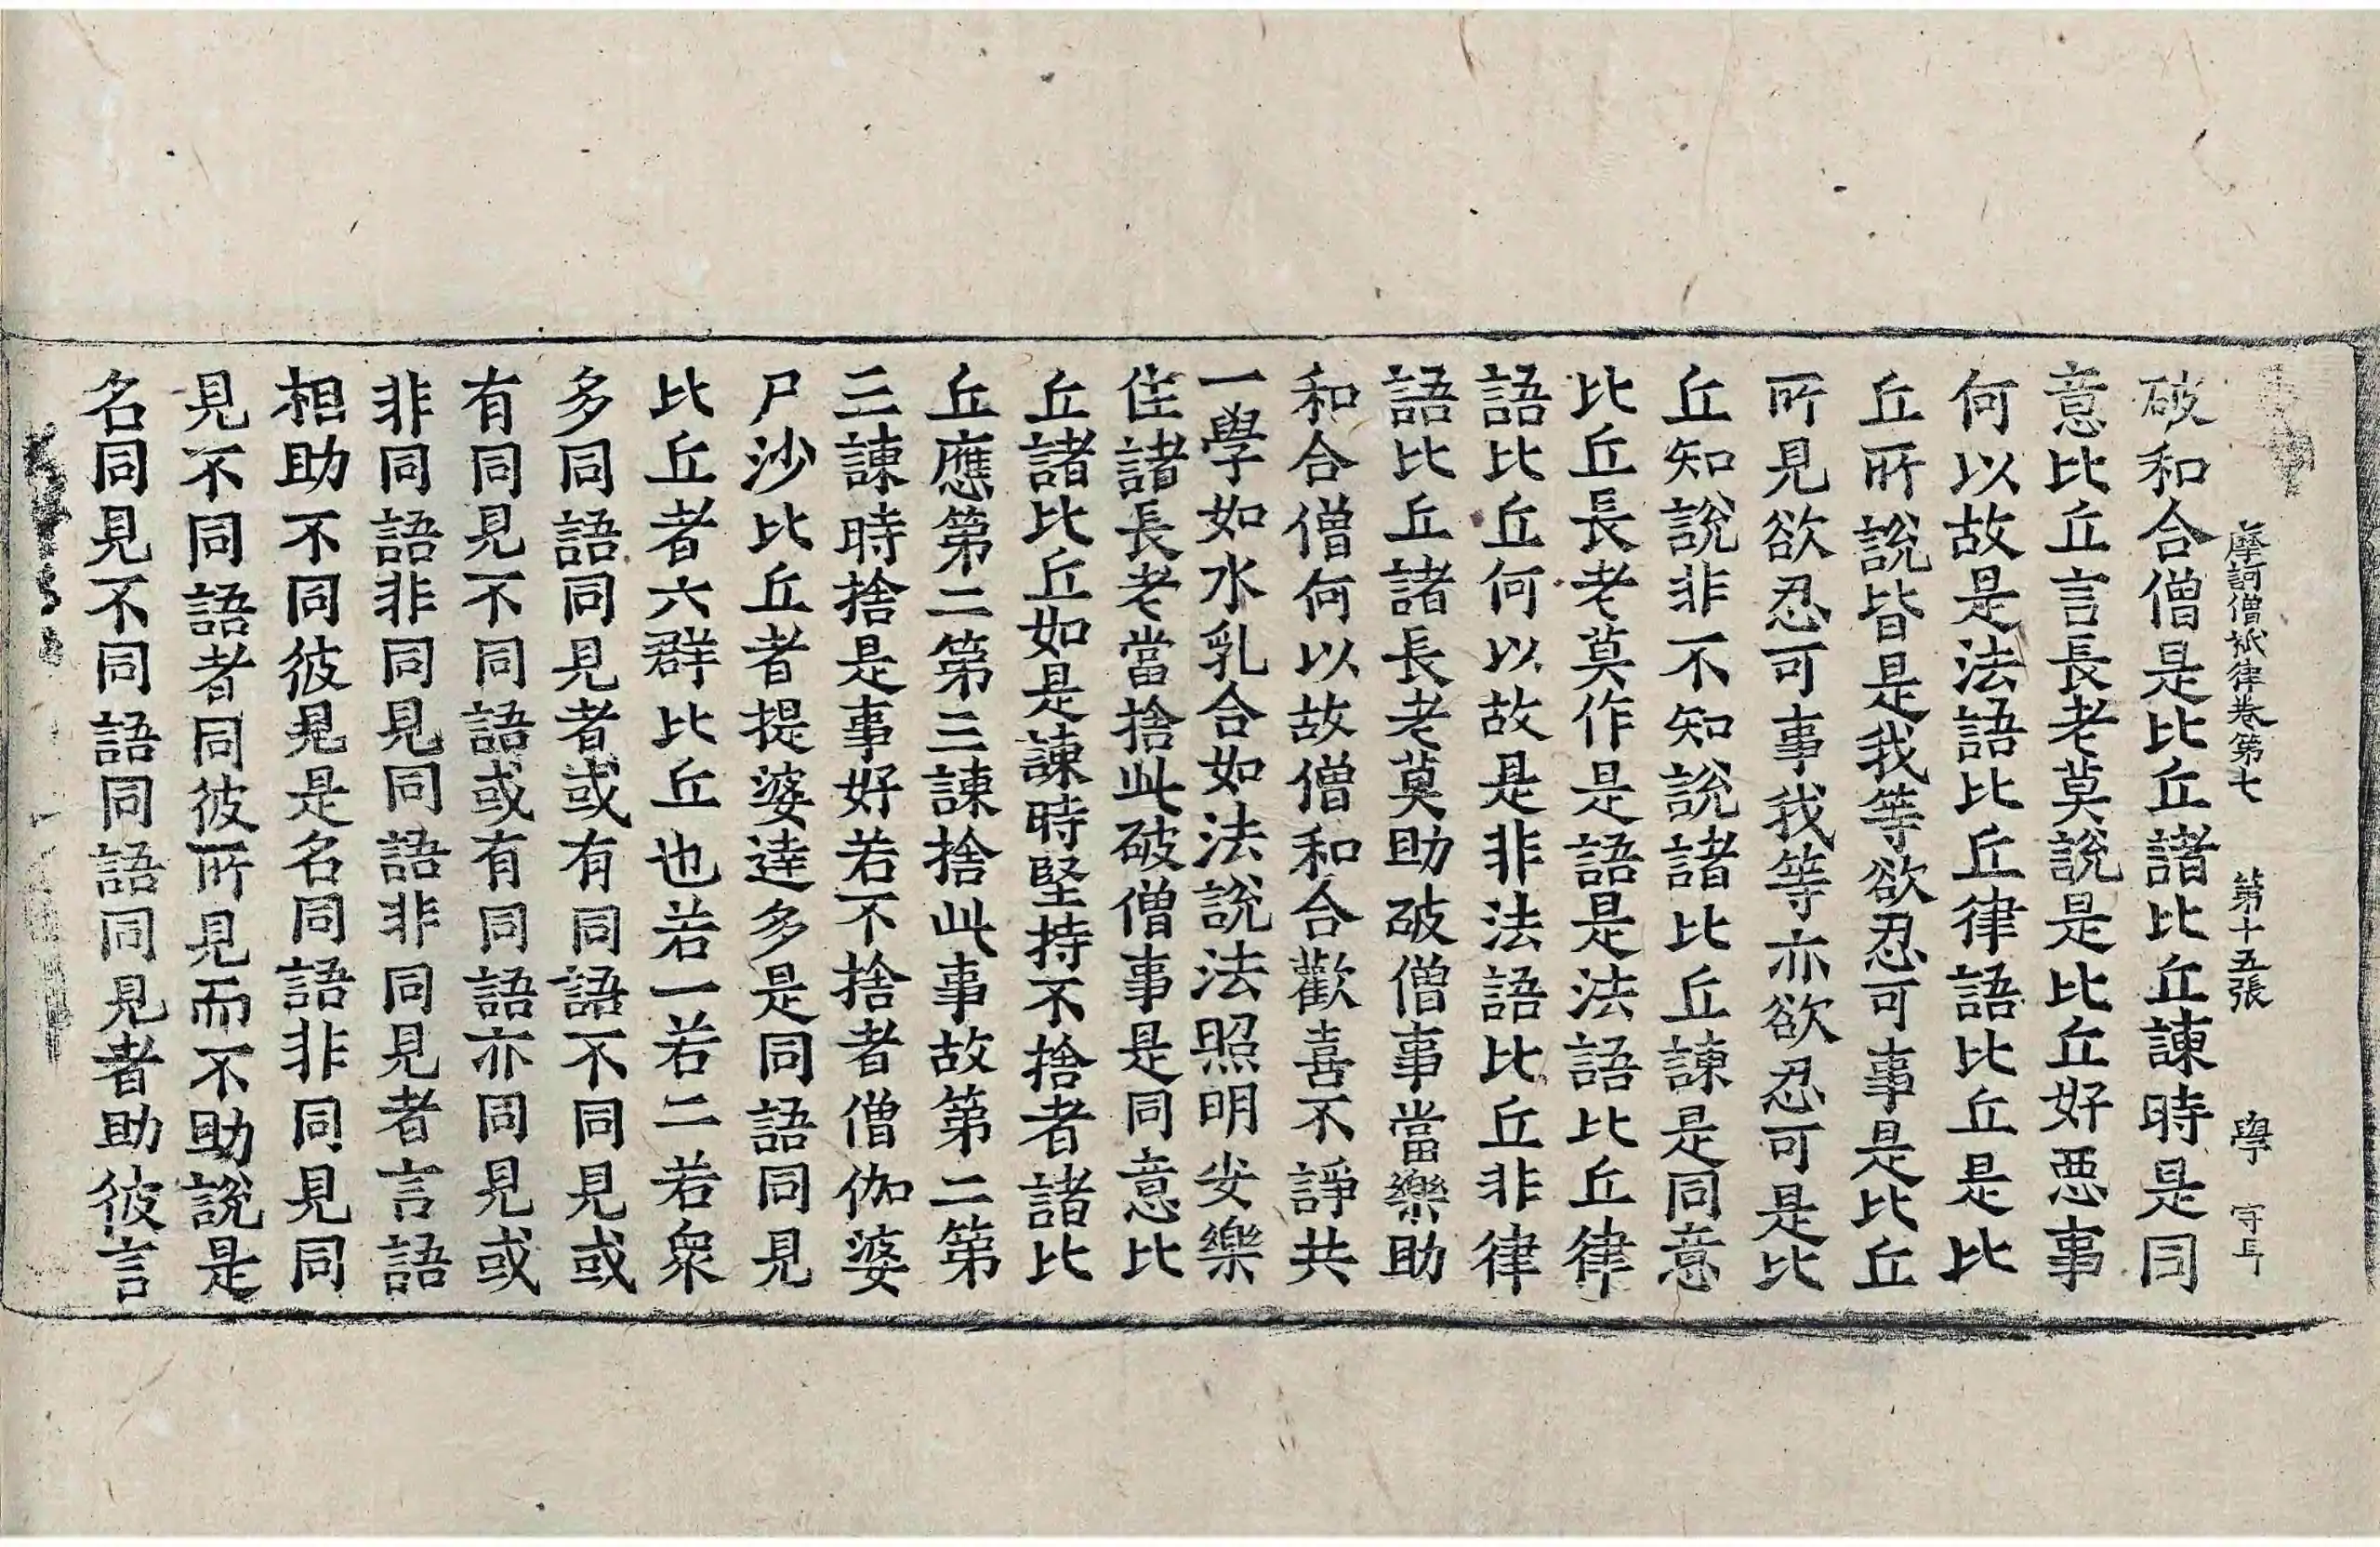 摩訶僧祇律卷第七 第十五張 學
破和合僧是比丘諸比丘諫時是同
意比丘言長老莫說是比丘好惡事
何以故是法語比丘律語比丘是比
丘所說皆是我等欲忍可事是比丘
所見欲忍可事我等亦欲忍可是比
丘知說非不知說諸比丘諫是同意
比丘長老莫作是語是法語比丘律
語比丘何以故是非法語比丘非律
語比丘諸長老莫助破僧事當樂助
和合僧何以故僧和合歡喜不諍共
一學如水乳合如法說法照明安樂
住諸長老當捨此破僧事是同意比
丘諸比丘如是諫時堅持不捨者諸比
丘應第二第三諫捨此事故第二第
三諫時捨是事好若不捨者僧伽婆
尸沙比丘者提婆達多是同語同見
比丘者六群比丘也若一若二若衆
多同語同見者或有同語不同見或
有同見不同語或有同語亦同見或
非同語非同見同語非同見者言語
相助不同彼見是名同語非同見同
見不同語者同彼所見而不助說是
名同見不同語同語同見者助彼言